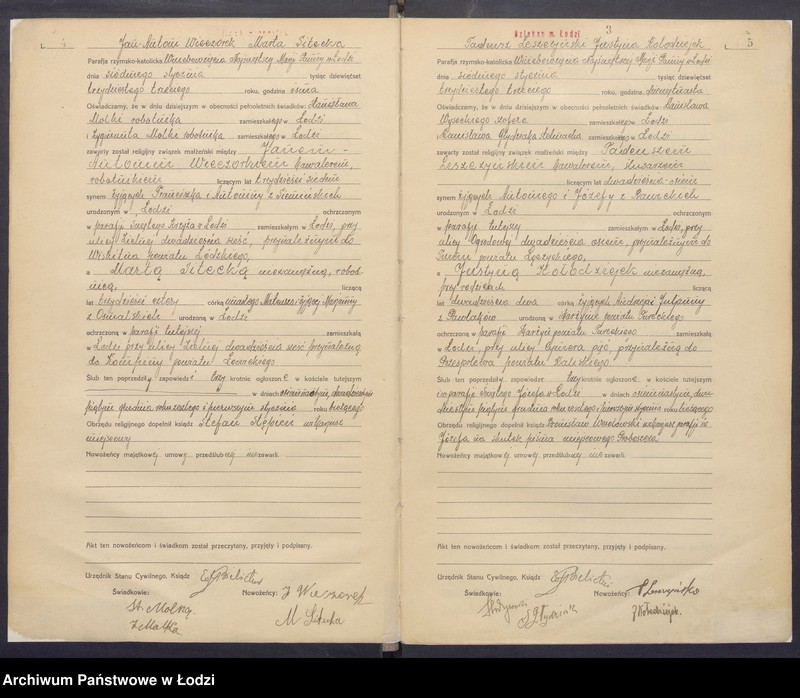 4
Jan-Antoni Wieczorek Marta Sitecka
Parafja rzymsko-katolicka Wniebowzięcia Najświętszej Marji Panny w Łodzi
dnia siódmego stycznia tysiąc dziewięćset
trzydziestego trzeciego roku, godzina ósma
Oświadczamy, że w dniu dzisiejszym w obecności pełnoletnich świadków: Stanisława
Molki robotnika zamieszkałego w Łodzi
i Zygmunta Molki robotnika zamieszkałego w Łodzi
zawarty został religijny związek małżeński między Janem-
Antonim Wieczorkiem kawalerem,
robotnikiem liczącym lat trzydzieści siedem
synem żyjących Franciszka i Antoniny z
urodzonym w Łodzi ochrzczonym
w parafji Świętego Krzyża w Łodzi zamieszkałym w Łodzi, przy
ulicy Zielnej dwadzieścia sześć, przynależnym do
Wiskitna powiatu Łódzkiego,
a Martą Sitecką niezamężną, robot-
nicą, liczącą
lat trzydzieści cztery córką zmarłego Mateusza i żyjącej Marjanny
z urodzoną w Łodzi
ochrzczoną w parafji tutejszej zamieszkałą
w Łodzi przy ulicy Zielnej dwadzieścia sześć przynależną
do powiatu
Ślub ten poprzedziły zapowiedzi trzy krotnie ogłoszone w kościele tutejszym
w dniach osiemnastym, dwudziestym
piątym grudnia roku zeszłego i pierwszym stycznia roku bieżącego
Obrzędu religijnego dopełnił ksiądz Stefan Stępień wikarjusz
miejscowy
Nowożeńcy majątkowej umowy przedślubnej nie zawarli.
Akt ten nowożeńcom i świadkom został przeczytany, przyjęty i podpisany.
Urzędnik Stanu Cywilnego, Ksiądz
Świadkowie: Nowożeńcy: J Wieczorek
St. Molka
Z Molka M Sitecka
3
5
Tadeusz Leszczyński Justyna Kołodziejek
Parafja rzymsko-katolicka Wniebowzięcia Najświętszej Marji Panny w Łodzi
dnia siódmego stycznia tysiąc dziewięćset
trzydziestego trzeciego roku, godzina dwunasta
Oświadczamy, że w dniu dzisiejszym w obecności pełnoletnich świadków: Stanisława
Wysockiego szofera zamieszkałego w Łodzi
i Stanisława ślusarza zamieszkałego w Łodzi
zawarty został religijny związek małżeński między Tadeuszem
Leszczyńskim kawalerem, ślusarzem
liczącym lat dwadzieścia-osiem
synem żyjących Antoniego i Józefy z
urodzonym w Łodzi ochrzczonym
w parafji tutejszej zamieszkałym w Łodzi, przy
ulicy Ogrodowej dwadzieścia osiem, przynależnym do
powiatu
a Justyną Kołodziejek niezamężną,
przy rodzicach liczącą
lat dwadzieścia dwa córką żyjących
z Pawlaków urodzoną w powiatu Tureckiego
ochrzczoną w parafji powiatu Tureckiego zamieszkałą
w Łodzi, przy ulicy pięć, przynależną do
powiatu
Ślub ten poprzedziły zapowiedzi trzy krotnie ogłoszone w kościele tutejszym
i w parafji Świętego Józefa w Łodzi w dniach osiemnastym, dwu-
dziestym piątym grudnia roku zeszłego i pierwszym stycznia roku bieżącego
Obrzędu religijnego dopełnił ksiądz Bronisław wikarjusz parafji św.
Józefa na skutek pisma miejscowego Proboszcza.
Nowożeńcy majątkowej umowy przedślubnej nie zawarli.
Akt ten nowożeńcom i świadkom został przeczytany, przyjęty i podpisany.
Urzędnik Stanu Cywilnego, Ksiądz
Świadkowie: Nowożeńcy:
J Kołodziejek.
Archiwum Państwowe w Łodzi